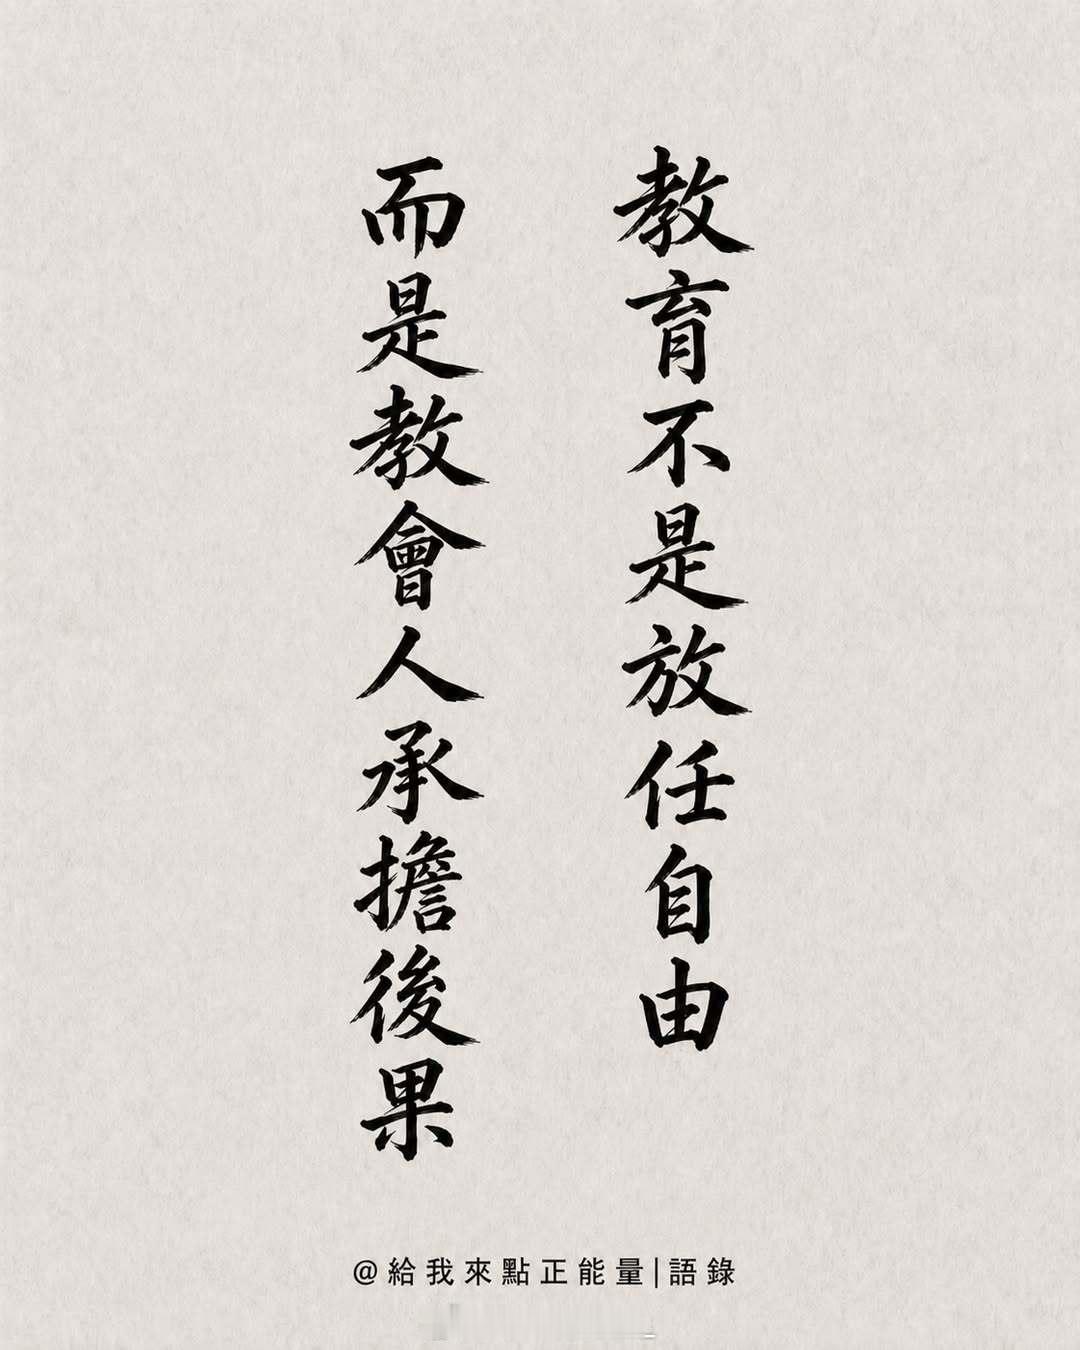 教育不是放任自由
而是教會人承擔後果
@給我來點正能量|語錄